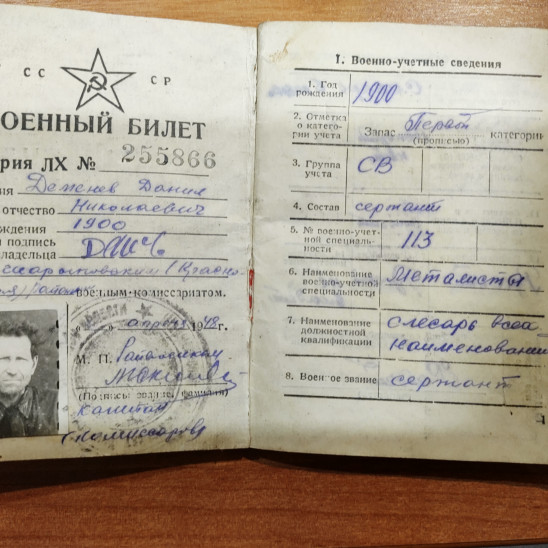 СС СР
ОЕННЫЙ БИЛЕТ
рия ЛХ № 255866
Деженев Данил
отчество Николаевич
ждения 1900
подпись
ладельца
военным комиссариатом.
апреля 1948г.
М. П. Райвоенком
(Подпись, звание, фамилия)
капитан
(Комиссаров
I. Военно-учетные сведения
1. Год
рождения 1900
2. Отметка
о катего-
рии учета Запас Первой категории
(прописью)
3. Группа
учета СВ
4. Состав сержант
5. № военно-учет-
ной специаль-
ности 113
6. Наименование
военно-учетной
специальности Металисты
7. Наименование
должностной
квалификации слесарь всех
наименований
8. Военное звание сержант